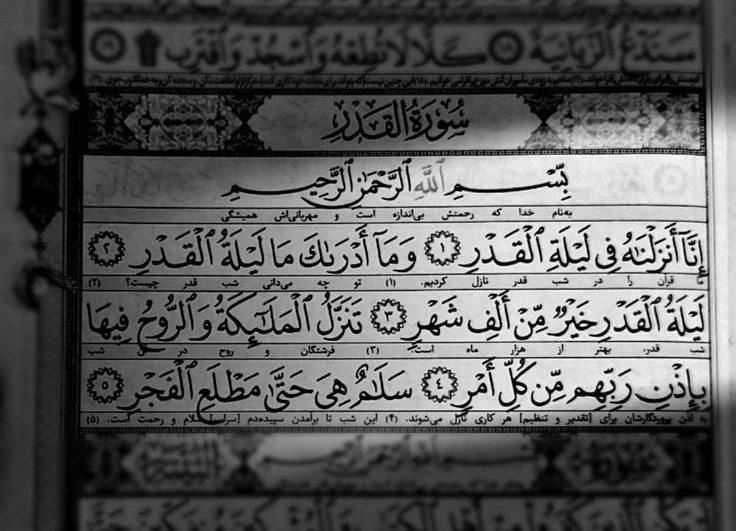 سَنَدْعُ الزَّبَانِيَةَ ۝١٨ كَلَّا لَا تُطِعْهُ وَاسْجُدْ وَاقْتَرِب ۩ ۝١٩
سُورَةُ الْقَدْرِ
بِسْمِ اللَّهِ الرَّحْمَٰنِ الرَّحِيمِ
به‌نام خدا که رحمتش بی‌اندازه است و مهربانی‌اش همیشگی
إِنَّا أَنزَلْنَاهُ فِي لَيْلَةِ الْقَدْرِ ۝١ وَمَا أَدْرَاكَ مَا لَيْلَةُ الْقَدْرِ ۝٢
ما قرآن را در شب قدر نازل کردیم. (۱) تو چه می‌دانی شب قدر چیست؟ (۲)
لَيْلَةُ الْقَدْرِ خَيْرٌ مِّنْ أَلْفِ شَهْرٍ ۝٣ تَنَزَّلُ الْمَلَائِكَةُ وَالرُّوحُ فِيهَا
شب قدر، بهتر از هزار ماه است. (۳) فرشتگان و روح در شب
بِإِذْنِ رَبِّهِم مِّن كُلِّ أَمْرٍ ۝٤ سَلَامٌ هِيَ حَتَّىٰ مَطْلَعِ الْفَجْرِ ۝٥
به اذن پروردگارشان برای [تقدیر و تنظیم] هر کاری نازل می‌شوند. (۴) این شب تا برآمدن سپیده‌دم [سراسر] سلام و رحمت است. (۵)
سُورَةُ الْبَيِّنَة
بِسْمِ اللَّهِ الرَّحْمَٰنِ الرَّحِيمِ